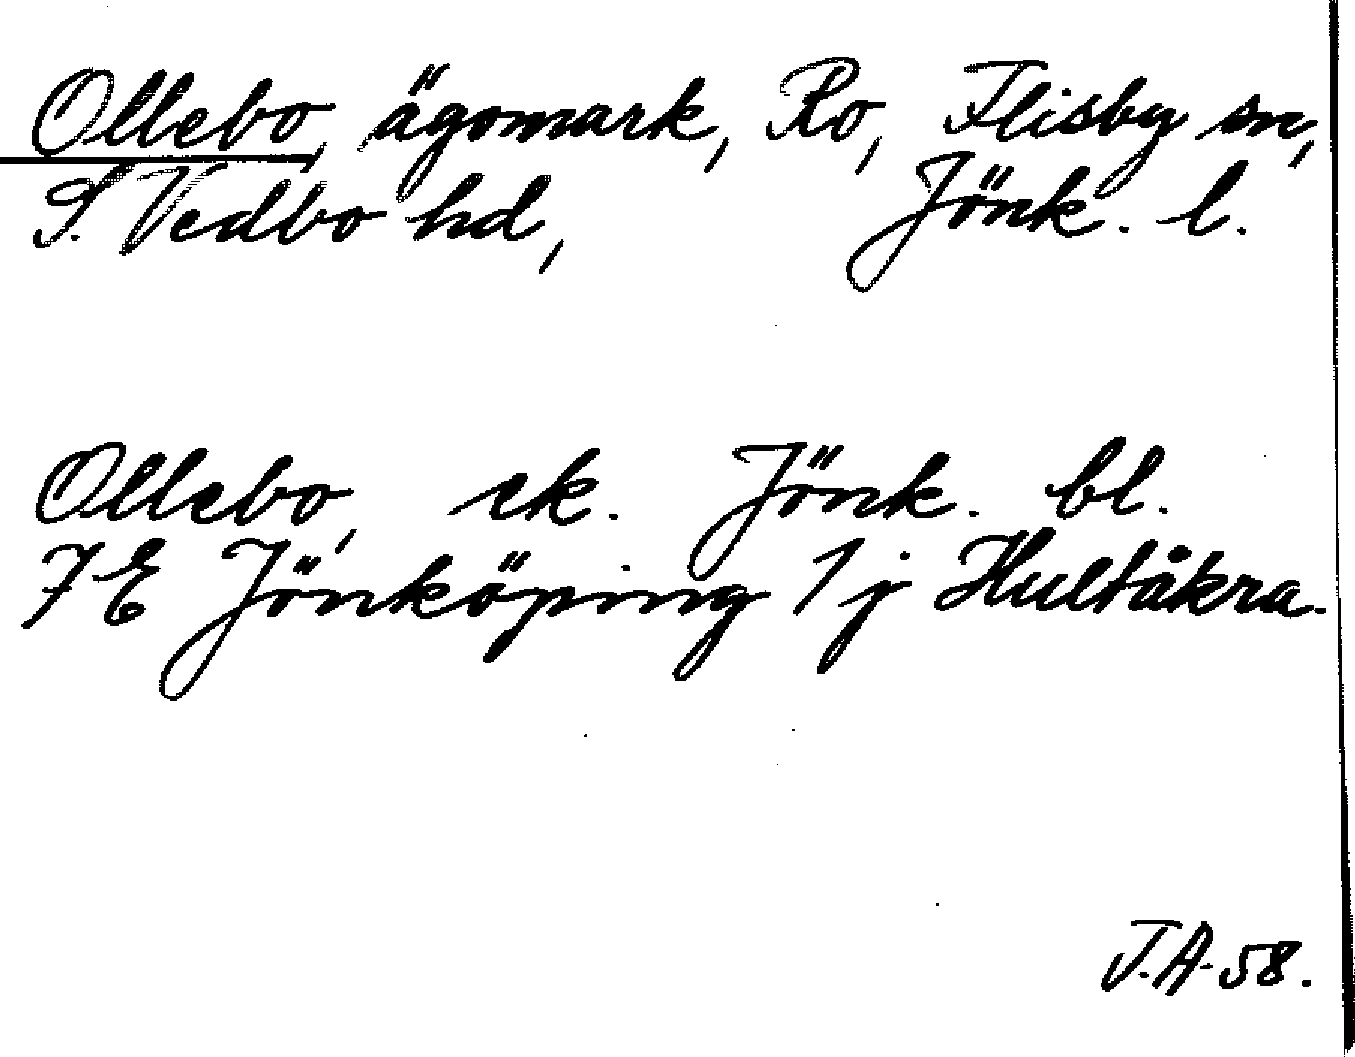 Ollebo, ägomark, Ro, Flisby sn,
S. Vedbo hd, Jönk. l.
Ollebo, ek. Jönk. bl.
7E Jönköping 1j Hultåkra.
J.A-58.